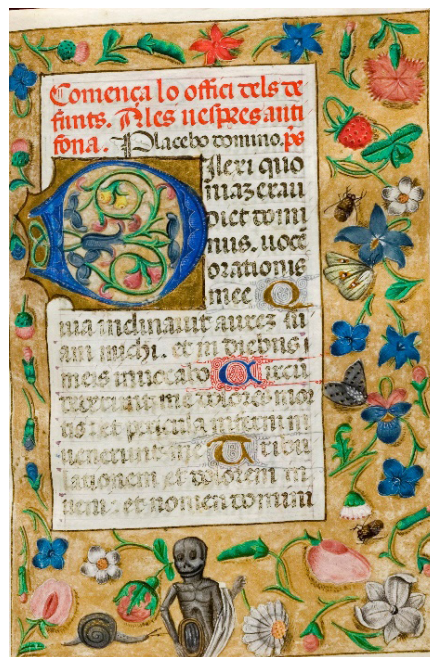 Comença lo offici dels de
funts. A les uespres anti
fona. Placebo domino. ps
Dilexi quo
niaz exau
diet domi
nus. uocē
orationis
mee Q
uia inclinauit aurez su
am michi. et in diebus
meis inuocabo Circu
dederunt me dolores mor
tis: et pericula inferni in
uenerunt me Tribu
lationem et dolorem in
ueni: et nomen domini